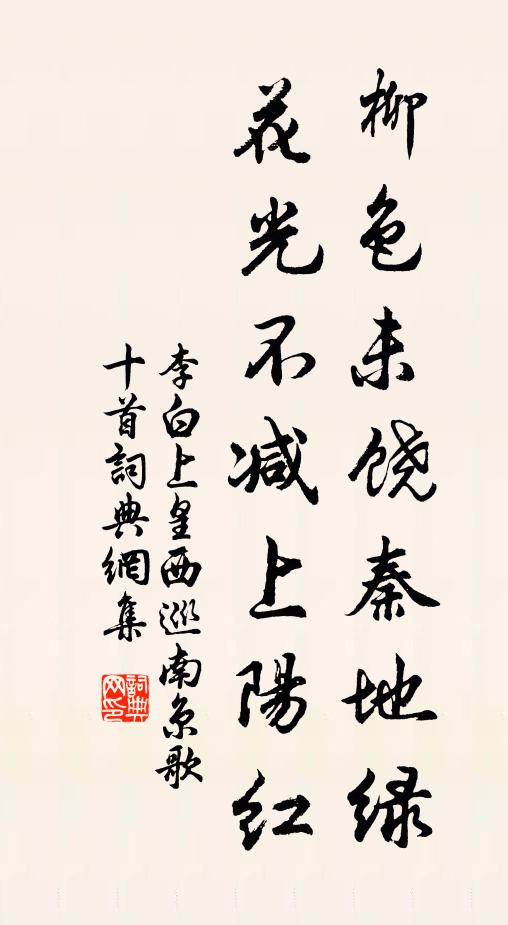 柳色未饶秦地绿
花光不减上陽红
李白上皇西巡南京歌
十首詞典網集
詞典网印